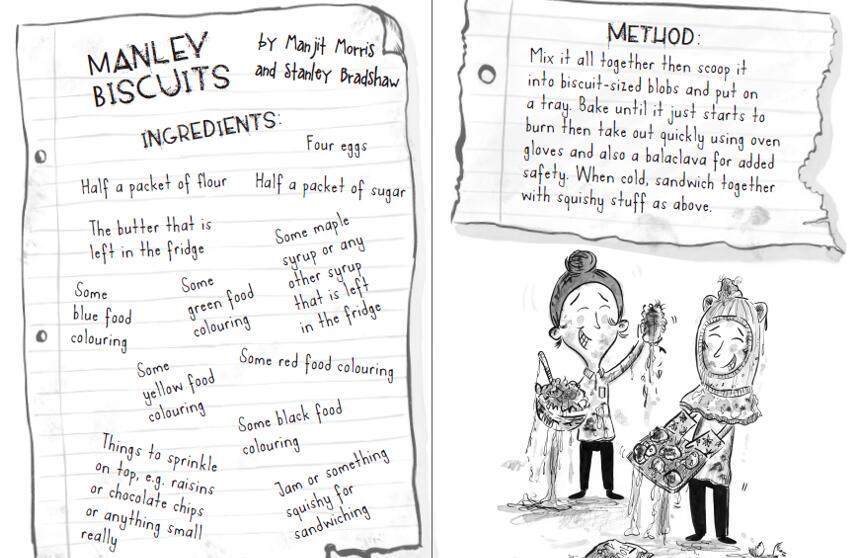 MANLEY
BISCUITS
by Manjit Morris
and Stanley Bradshaw
INGREDIENTS:
Four eggs
Half a packet of flour
Half a packet of sugar
The butter that is
left in the fridge
Some maple
syrup or any
other syrup
that is left
in the fridge
Some
blue food
colouring
Some
green food
colouring
Some
yellow food
colouring
Some red food colouring
Some black food
colouring
Things to sprinkle
on top, e.g. raisins
or chocolate chips
or anything small
really
Jam or something
squishy for
sandwiching
METHOD:
Mix it all together then scoop it
into biscuit-sized blobs and put on
a tray. Bake until it just starts to
burn then take out quickly using oven
gloves and also a balaclava for added
safety. When cold, sandwich together
with squishy stuff as above.